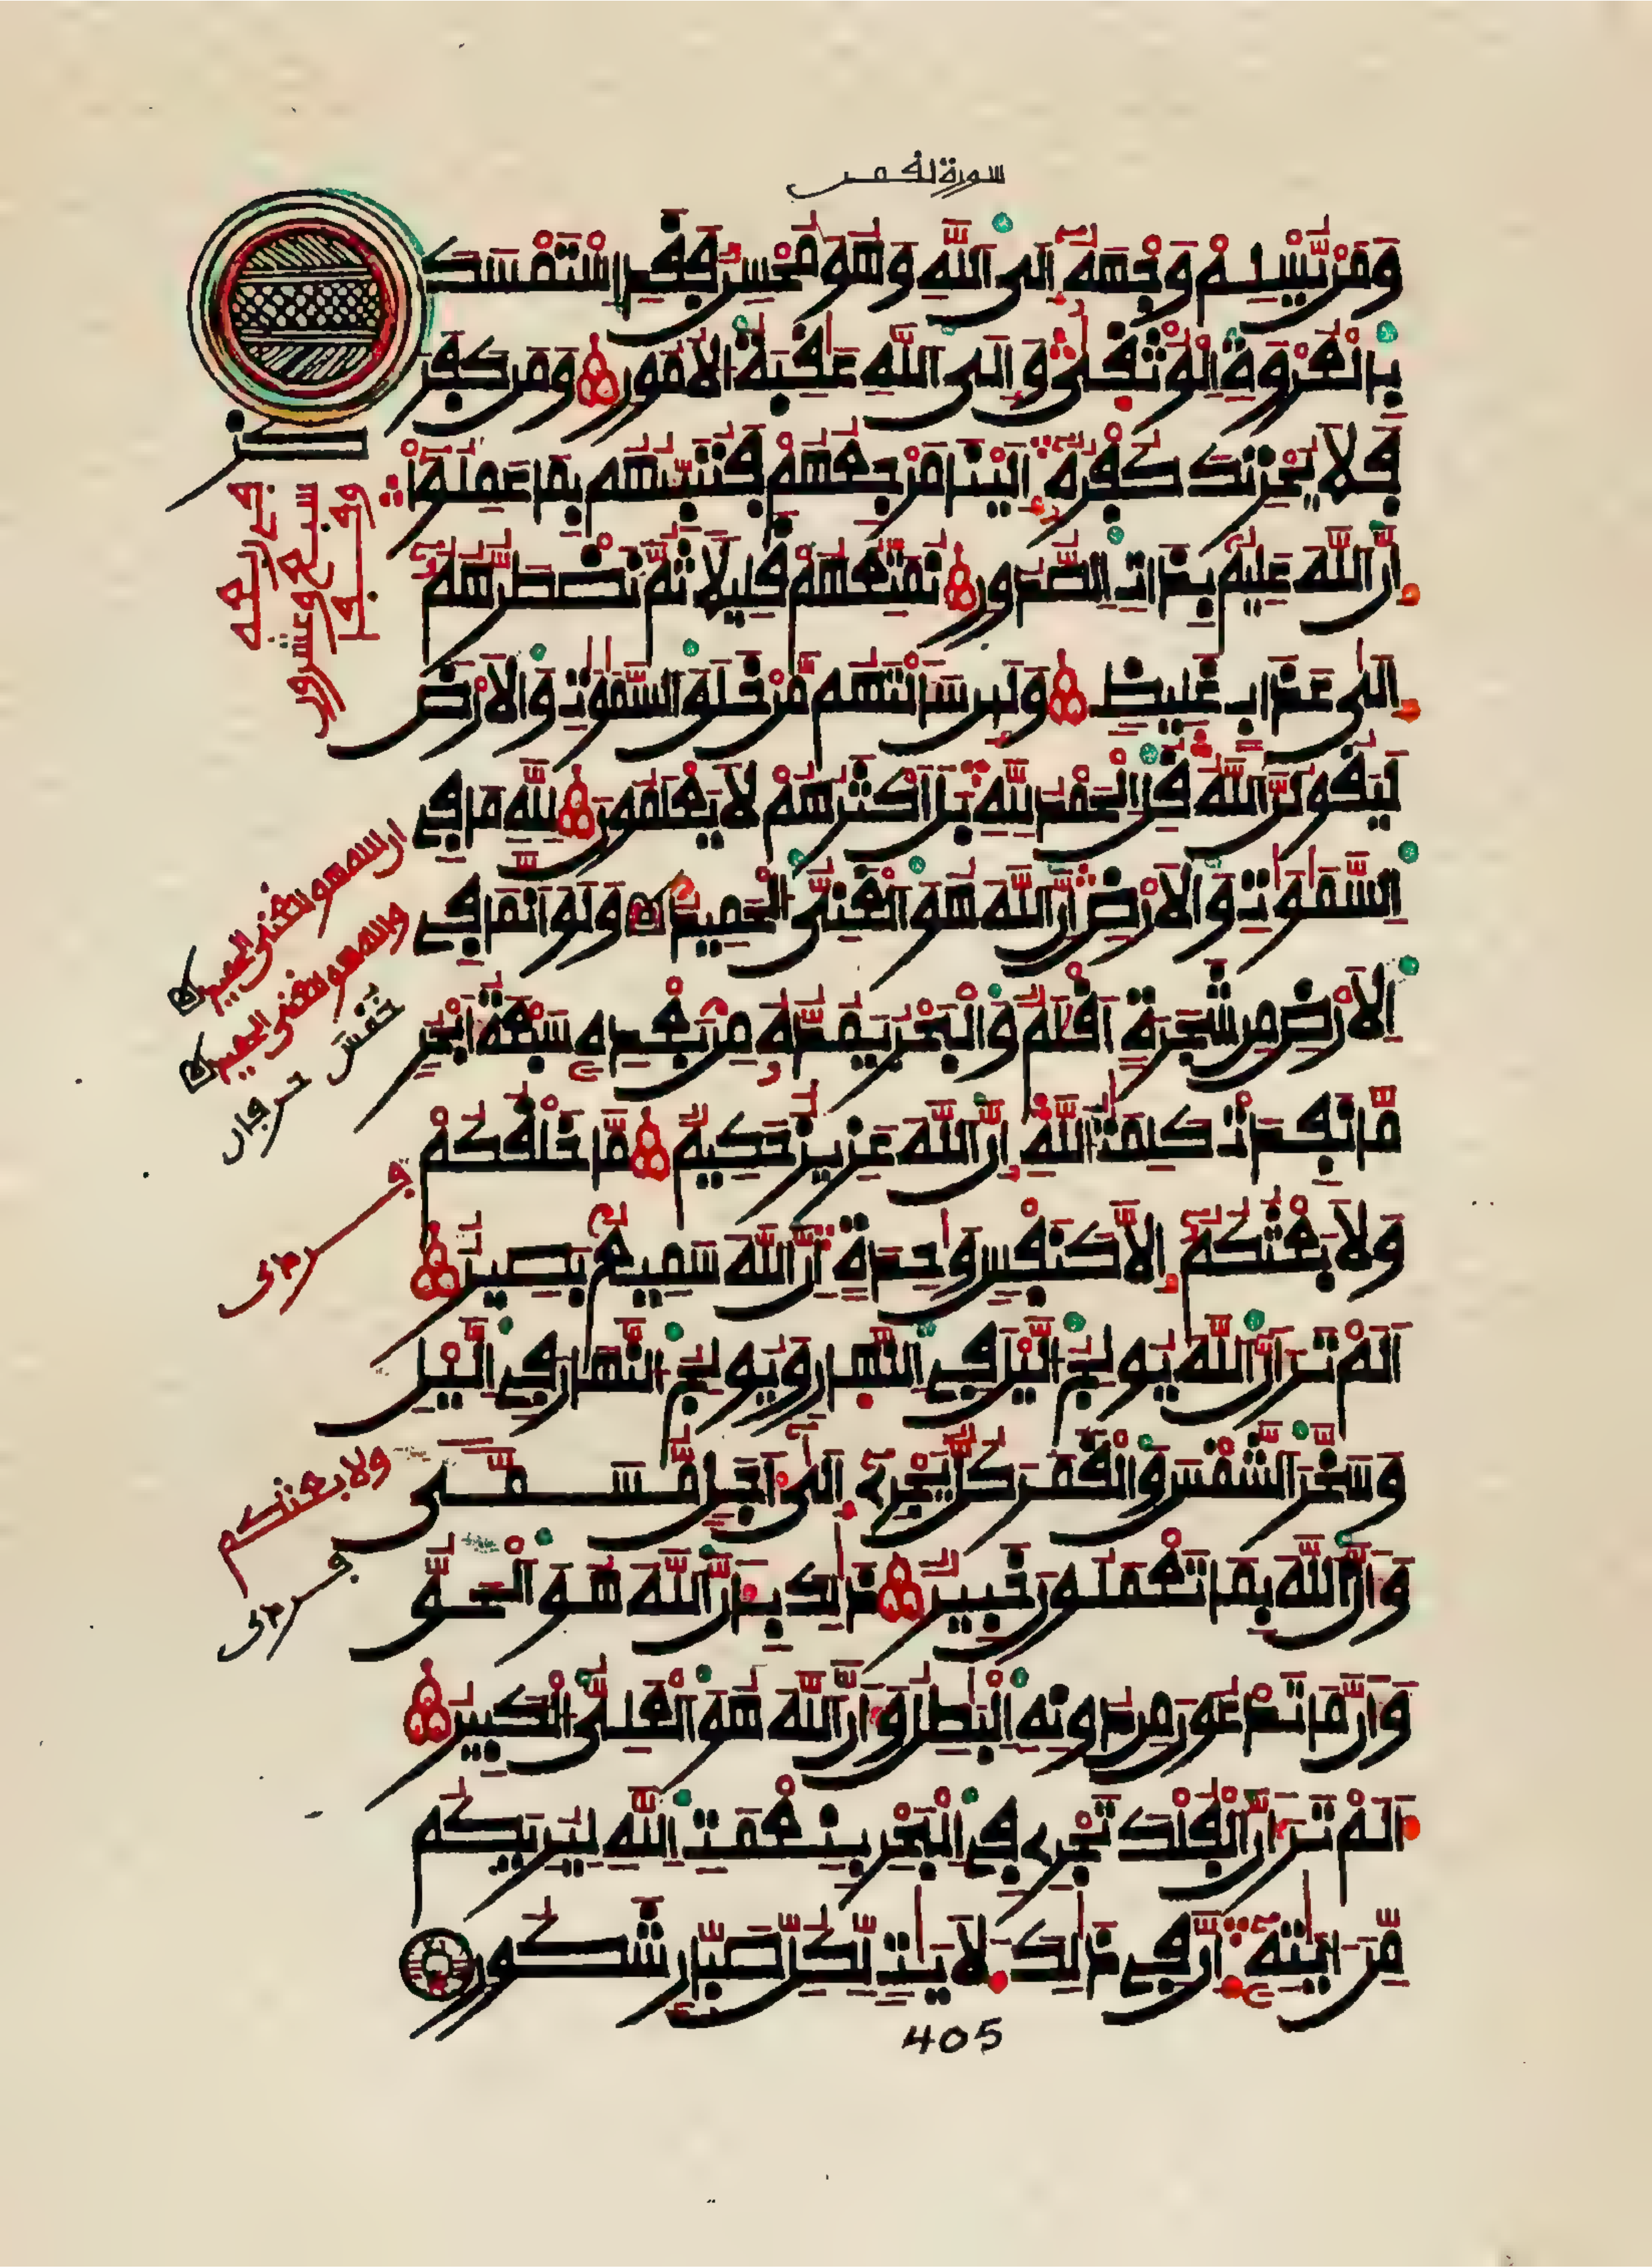 سورة لقمن
وَمَنْ يُّسْلِمْ وَجْهَهُ إِلَى اَللَّهِ وَهُوَ مُحْسِنٌ فَقَدِ اِسْتَمْسَكَ
بِالْعُرْوَةِ اِلْوُثْقَىٰ وَإِلَى اَللَّهِ عَٰقِبَةُ اُلْأُمُورِ وَمَن كَفَرَ
فَلَا يُحْزِنكَ كُفْرُهُ إِلَيْنَا مَرْجِعُهُمْ فَنُنَبِّئُهُم بِمَا عَمِلُواْ
إِنَّ اَللَّهَ عَلِيمٌ بِذَاتِ اِلصُّدُورِ نُمَتِّعُهُمْ قَلِيلًا ثُمَّ نَضْطَرُّهُمُ
إِلَىٰ عَذَابٍ غَلِيظٍ وَلَئِن سَأَلْتَهُم مَّنْ خَلَقَ اَلسَّمَٰوَٰتِ وَالْأَرْضَ
لَيَقُولُنَّ اَللَّهُ قُلِ اِلْحَمْدُ لِلَّهِ بَلْ أَكْثَرُهُمْ لَا يَعْلَمُونَ لِلَّهِ مَا فِي
اِلسَّمَٰوَٰتِ وَالْأَرْضِ إِنَّ اَللَّهَ هُوَ اَلْغَنِيُّ اُلْحَمِيدُ وَلَوْ أَنَّمَا فِي
اِلْأَرْضِ مِن شَجَرَةٍ أَقْلَٰمٌ وَالْبَحْرُ يَمُدُّهُ مِنْ بَعْدِهِ سَبْعَةُ أَبْحُرٍ
مَّا نَفِدَتْ كَلِمَٰتُ اُللَّهِ إِنَّ اَللَّهَ عَزِيزٌ حَكِيمٌ مَّا خَلْقُكُمْ
وَلَا بَعْثُكُمْ إِلَّا كَنَفْسٍ وَٰحِدَةٍ إِنَّ اَللَّهَ سَمِيعٌ بَصِيرٌ
أَلَمْ تَرَ أَنَّ اَللَّهَ يُولِجُ اُلَّيْلَ فِي اِلنَّهَارِ وَيُولِجُ اُلنَّهَارَ فِي اِلَّيْلِ
وَسَخَّرَ اَلشَّمْسَ وَالْقَمَرَ كُلٌّ يَجْرِي إِلَىٰ أَجَلٍ مُّسَمًّى
وَأَنَّ اَللَّهَ بِمَا تَعْمَلُونَ خَبِيرٌ ذَٰلِكَ بِأَنَّ اَللَّهَ هُوَ اَلْحَقُّ
وَأَنَّ مَا تَدْعُونَ مِن دُونِهِ اِلْبَٰطِلُ وَأَنَّ اَللَّهَ هُوَ اَلْعَلِيُّ اُلْكَبِيرُ
أَلَمْ تَرَ أَنَّ اَلْفُلْكَ تَجْرِي فِي اِلْبَحْرِ بِنِعْمَتِ اِللَّهِ لِيُرِيَكُم
مِّنْ ءَايَٰتِهِ إِنَّ فِي ذَٰلِكَ لَأٓيَٰتٍ لِّكُلِّ صَبَّارٍ شَكُورٍ
405
ان الله هو الغنى الحميد
والله هو الغنى الحميد
ولا بعثكم